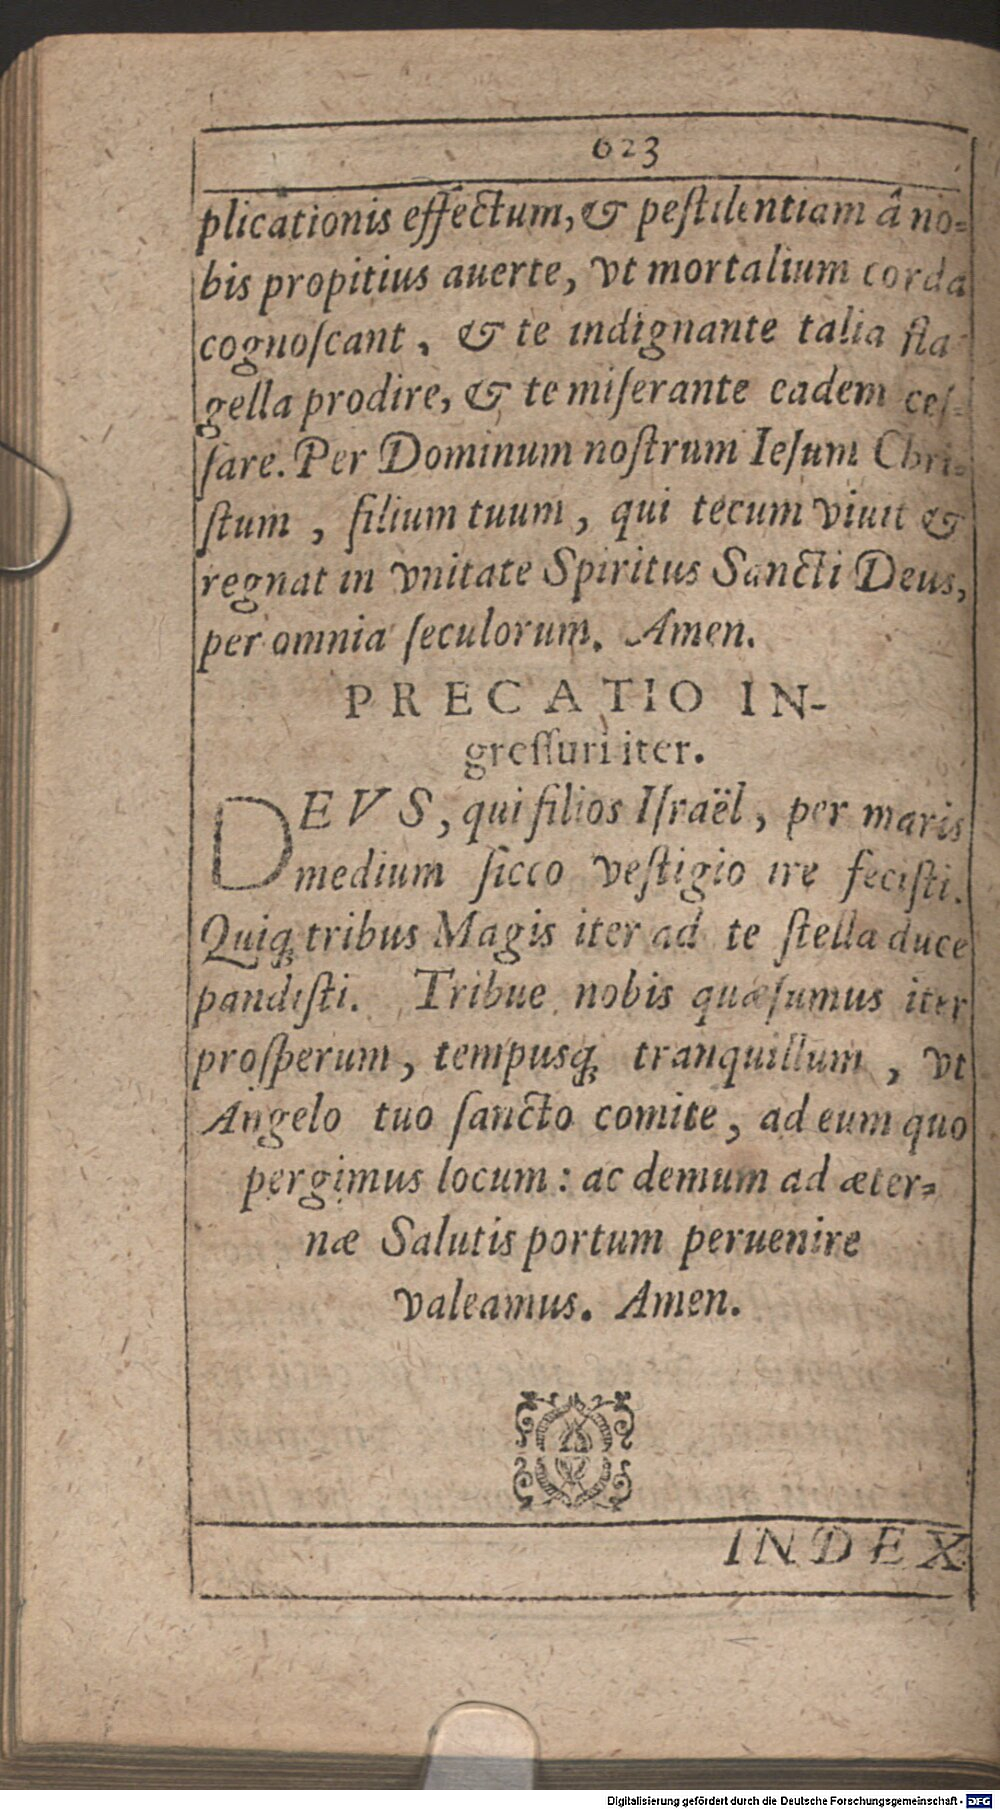 623
plicationis effectum, & pestilentiam â no-
bis propitius auerte, vt mortalium corda
cognoscant, & te indignante talia fla
gella prodire, & te miserante eadem ces-
sare. Per Dominum nostrum Iesum Chri-
stum, filium tuum, qui tecum viuit &
regnat in vnitate Spiritus Sancti Deus,
per omnia seculorum. Amen.
PRECATIO IN-
gressuri iter.
DEVS, qui filios Israël, per maris
medium sicco vestigio ire fecisti.
Quiq; tribus Magis iter ad te stella duce
pandisti. Tribue nobis quæsumus iter
prosperum, tempusq; tranquillum, vt
Angelo tuo sancto comite, ad eum quo
pergimus locum: ac demum ad æter-
næ Salutis portum peruenire
valeamus. Amen.
INDEX
Digitalisierung gefördert durch die Deutsche Forschungsgemeinschaft - DFG